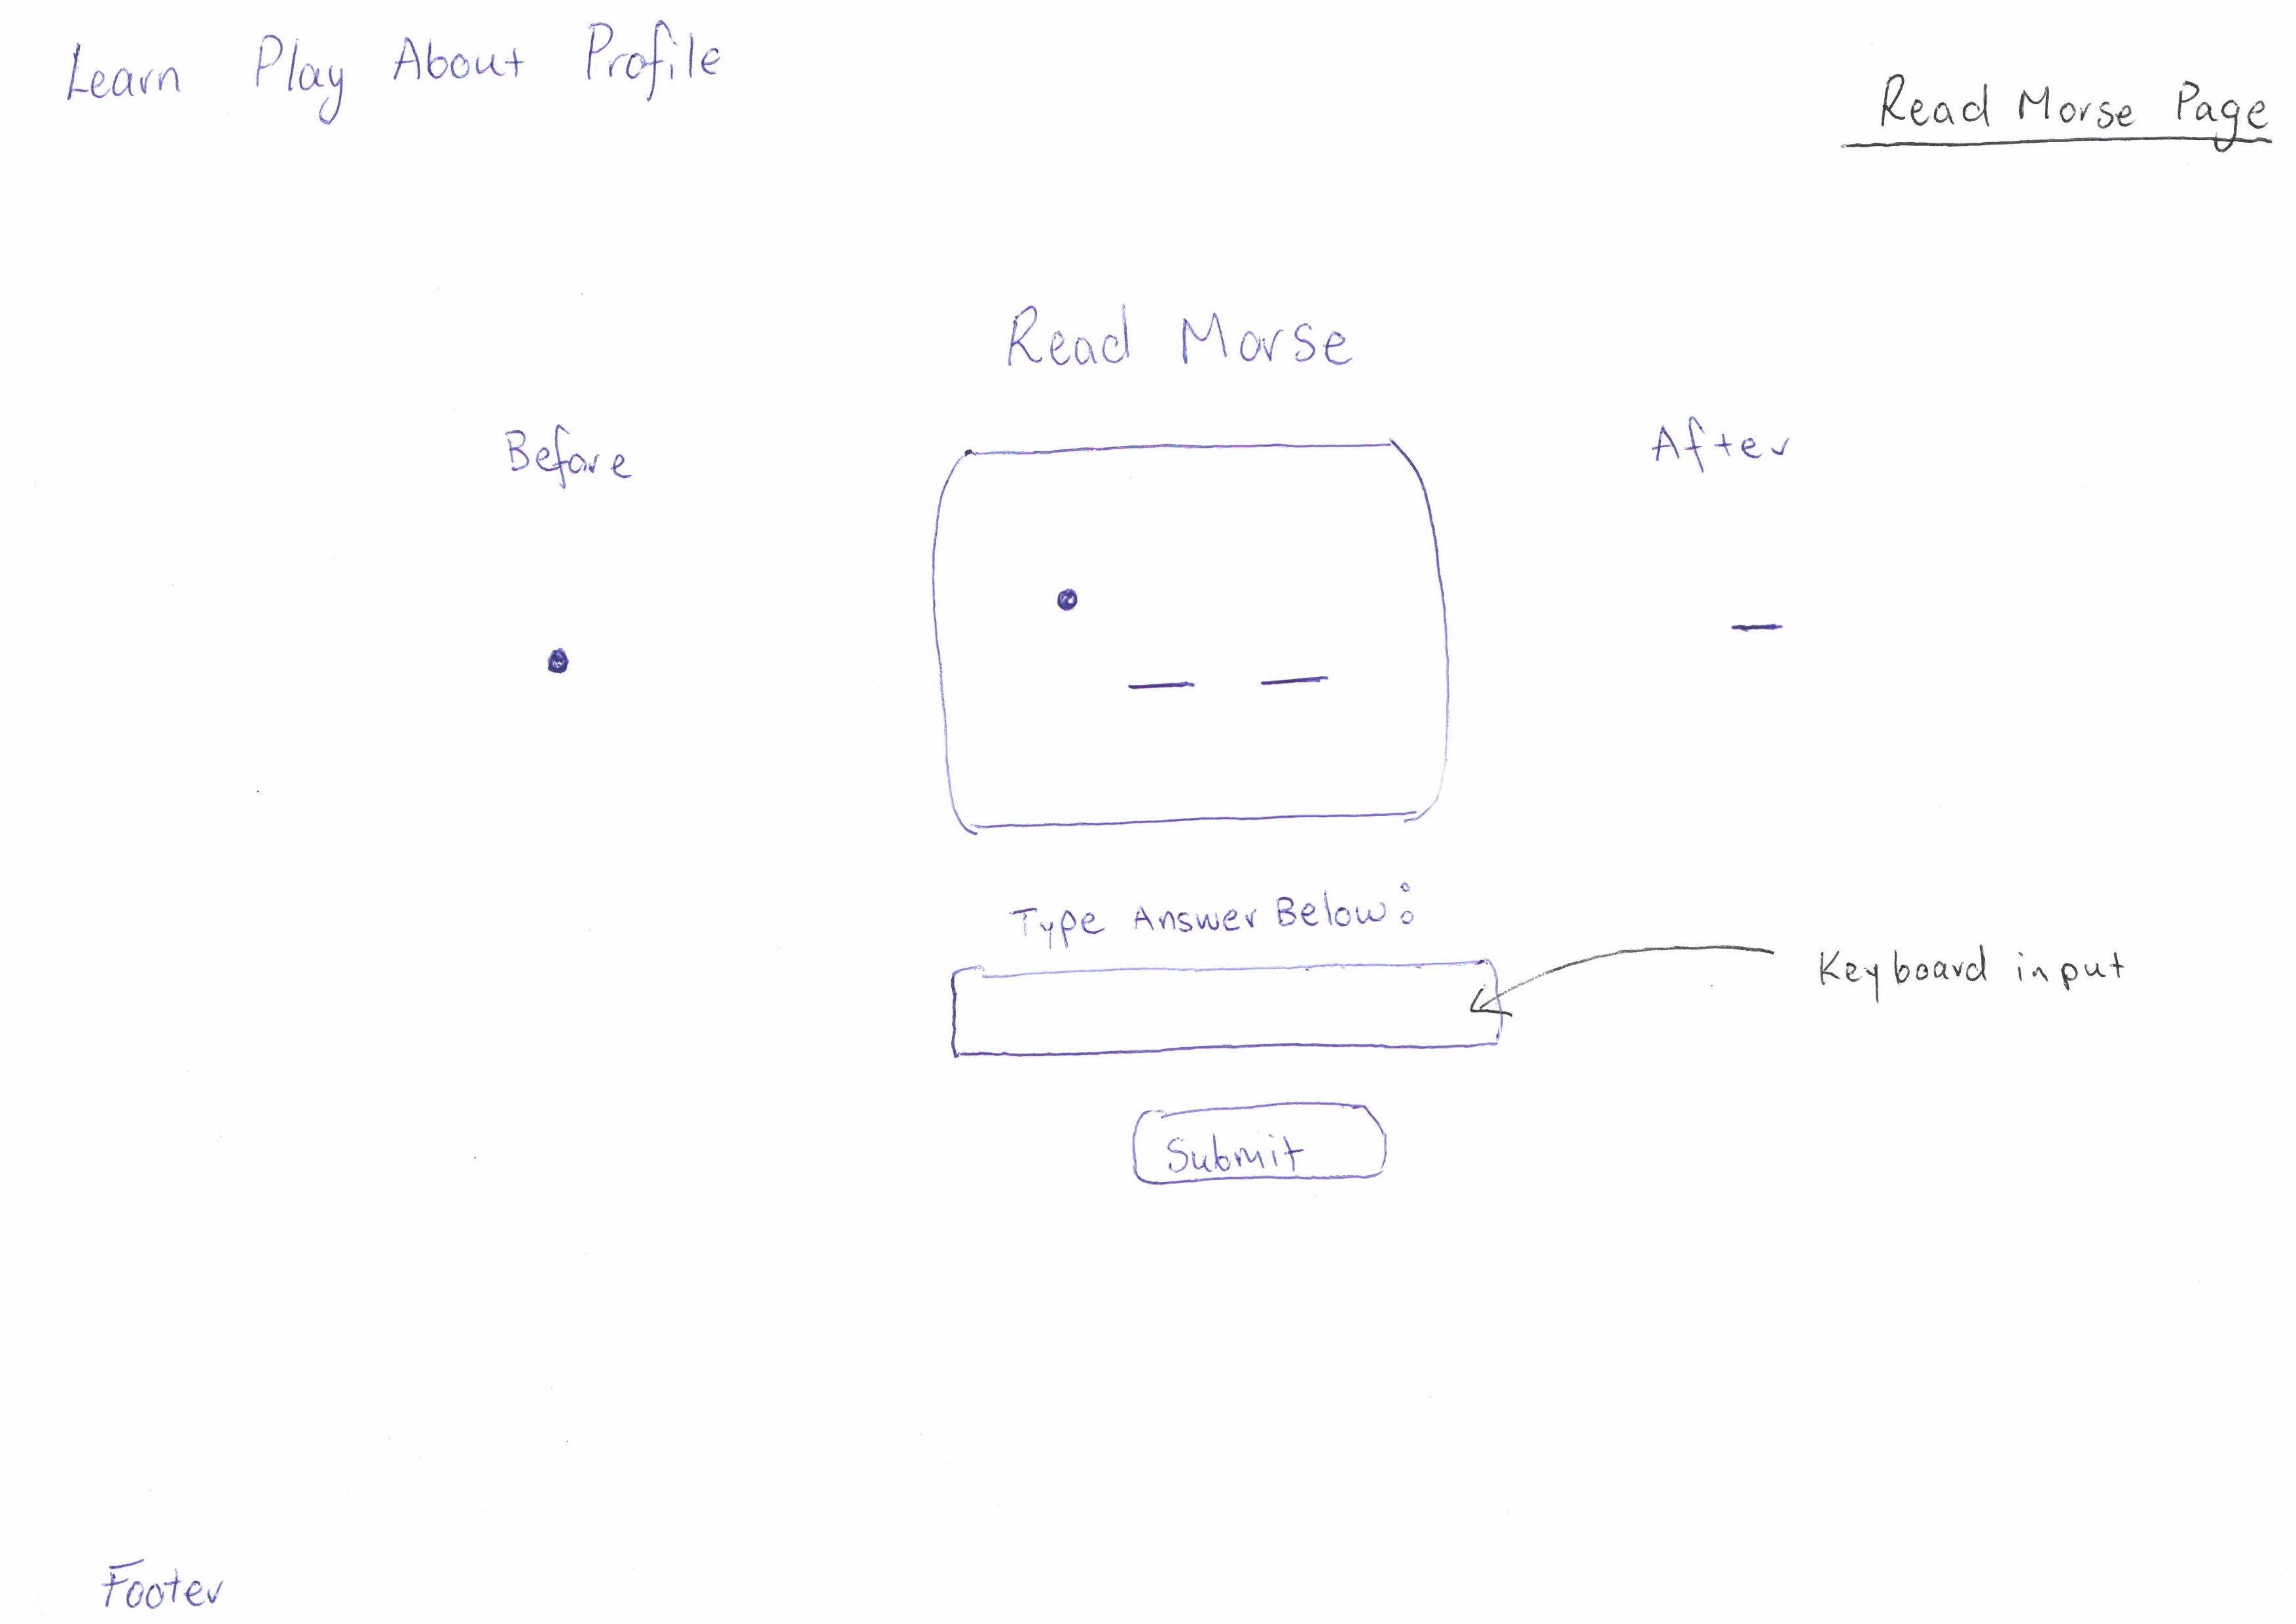 Learn Play About Profile
Read Morse Page
Read Morse
Before
After
Type Answer Below:
Keyboard input
Submit
Footer